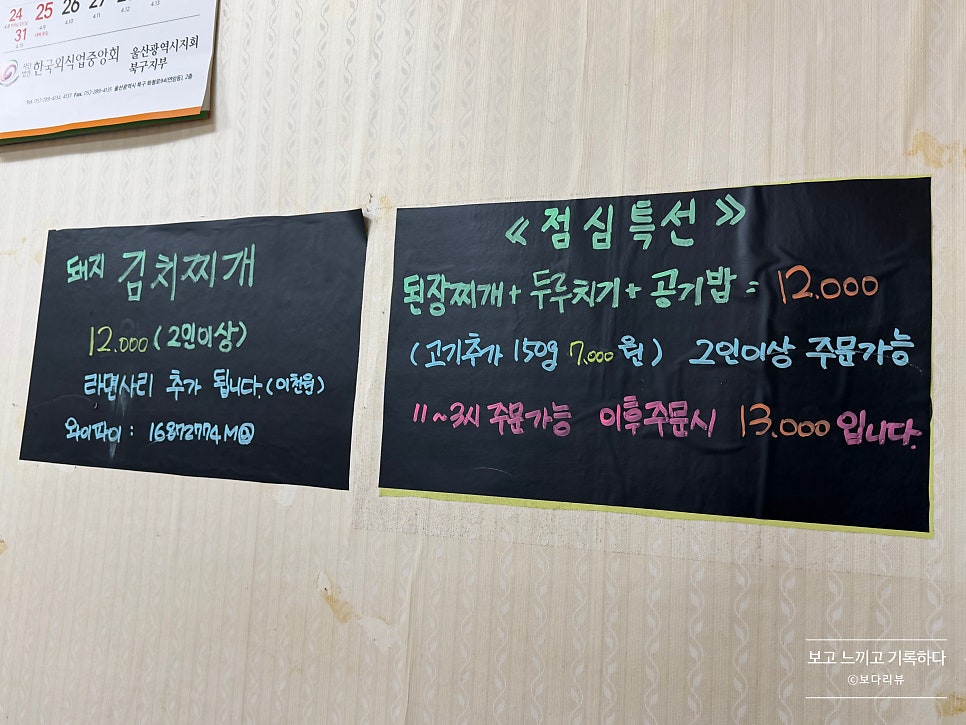 24 25 26 27
4.9 4.10 4.11 4.12 4.13
31
4.15
한국외식업중앙회 울산광역시지회
북구지부
돼지 김치찌개
12.000 (2인이상)
라면사리 추가 됩니다. (이천원)
와이파이 : 16872774M
《점심특선》
된장찌개 + 두루치기 + 공기밥 = 12.000
(고기추가 150g 7.000원) 2인이상 주문가능
11~3시 주문가능 이후주문시 13.000 입니다.
보고 느끼고 기록하다
©보다리뷰